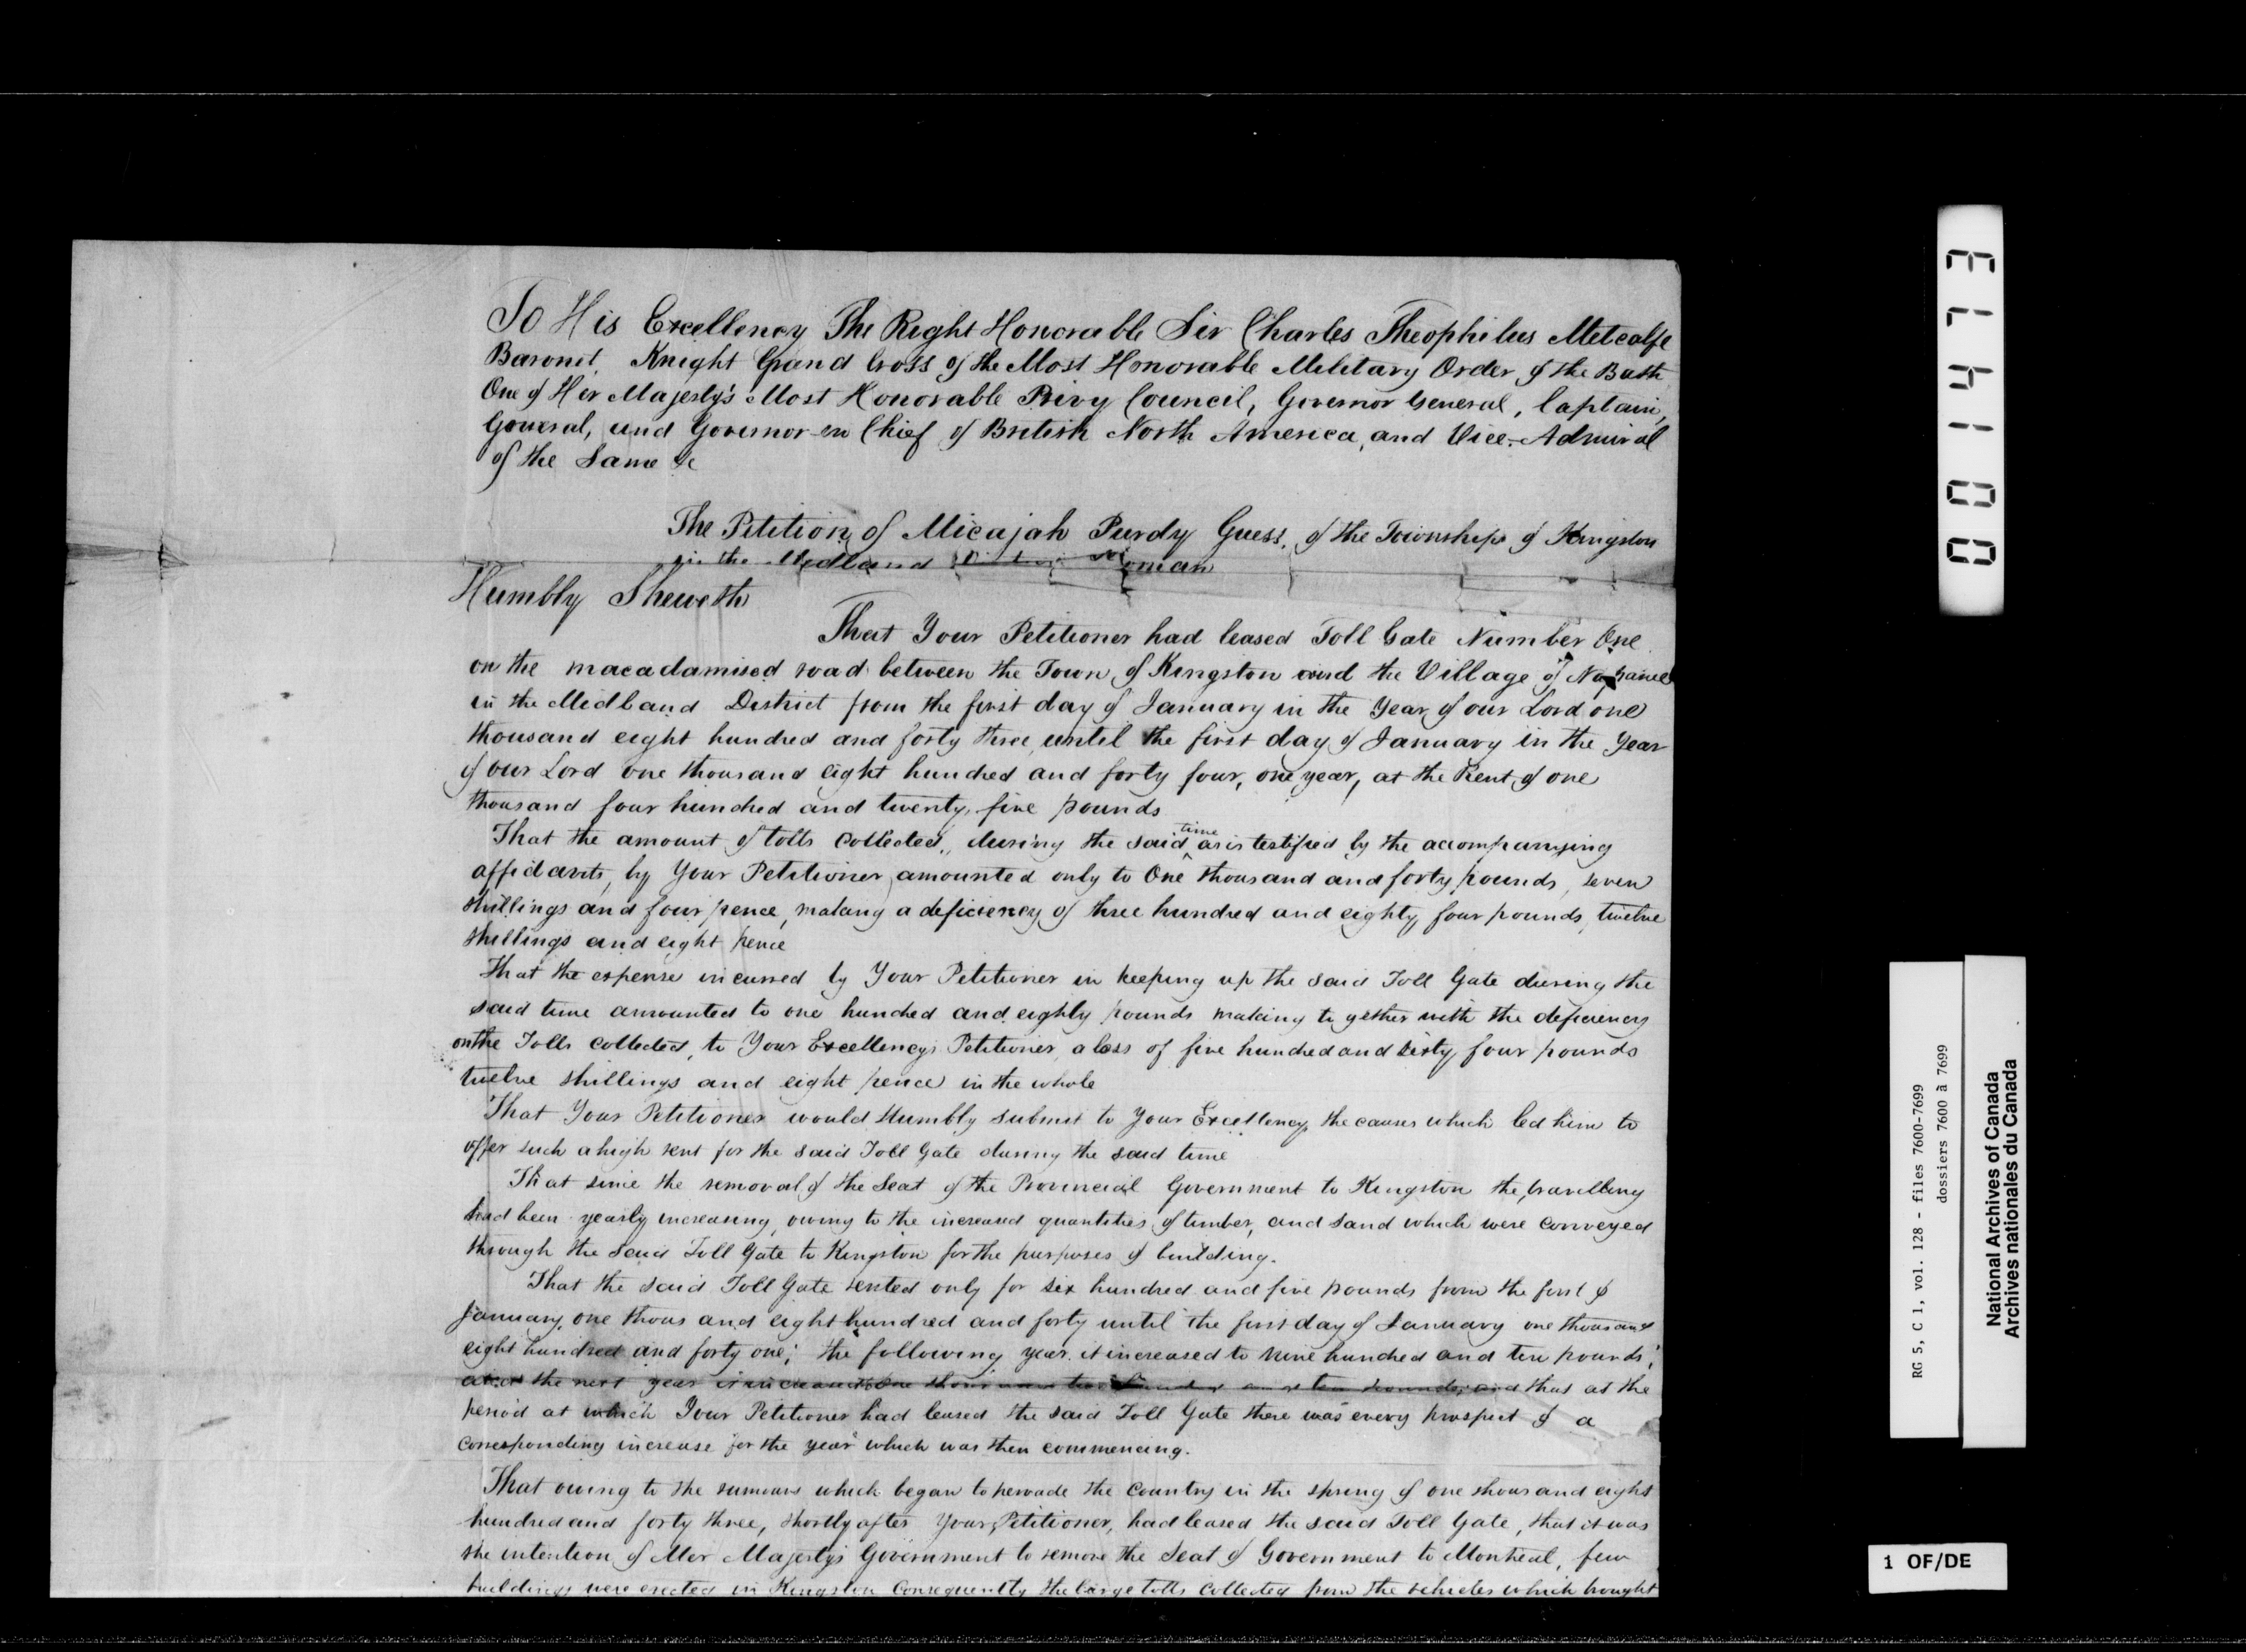 To His Excellency The Right Honorable Sir Charles Theophilus Metcalfe
Baronet, Knight Grand Cross of the Most Honorable Military Order of the Bath
One of Her Majesty's Most Honorable Privy Council, Governor General, Captain,
General, and Governor in Chief of British North America, and Vice-Admiral
of the Same &c
The Petition of Micajah Purdy Guess, of the Township of Kingston
in the Midland District Yeoman
Humbly Sheweth
That Your Petitioner had leased Toll Gate Number One
on the macadamised road between the Town of Kingston and the Village of Napanee
in the Midland District from the first day of January in the Year of our Lord one
thousand eight hundred and forty three, until the first day of January in the Year
of our Lord one thousand eight hundred and forty four, one year, at the Rent of one
thousand four hundred and twenty five pounds
That the amount of tolls collected, during the said time as is testified by the accompanying
affidavits, by Your Petitioner, amounted only to One thousand and forty pounds, seven
shillings and four pence, making a deficiency of three hundred and eighty four pounds, twelve
shillings and eight pence
That the expense incurred by Your Petitioner in keeping up the said Toll Gate during the
said time amounted to one hundred and eighty pounds making together with the deficiency
on the Tolls collected, to Your Excellency's Petitioner, a loss of five hundred and sixty four pounds
twelve shillings and eight pence in the whole
That Your Petitioner would Humbly submit to Your Excellency, the causes which led him to
offer such a high rent for the said Toll Gate during the said time
That since the removal of the Seat of the Provincial Government to Kingston the travelling
had been yearly increasing, owing to the increased quantities of timber, and sand which were conveyed
through the said Toll Gate to Kingston for the purposes of building.
That the said Toll Gate rented only for six hundred and five pounds from the first of
January, one thousand eight hundred and forty until the first day of January one thousand
eight hundred and forty one; the following year it increased to nine hundred and ten pounds;
the next year it increased to One thousand two hundred and ten pounds; and that at the
period at which Your Petitioner had leased the said Toll Gate there was every prospect of a
corresponding increase for the year which was then commencing.
That owing to the rumours which began to pervade the Country in the spring of one thousand eight
hundred and forty three, shortly after Your Petitioner, had leased the said Toll Gate, that it was
the intention of Her Majesty's Government to remove the Seat of Government to Montreal, few
buildings were erected in Kingston Consequently the large tolls collected from the vehicles which brought
001473
RG 5, C 1, vol. 128 - files 7600-7699
dossiers 7600 à 7699
National Archives of Canada
Archives nationales du Canada
1 OF/DE